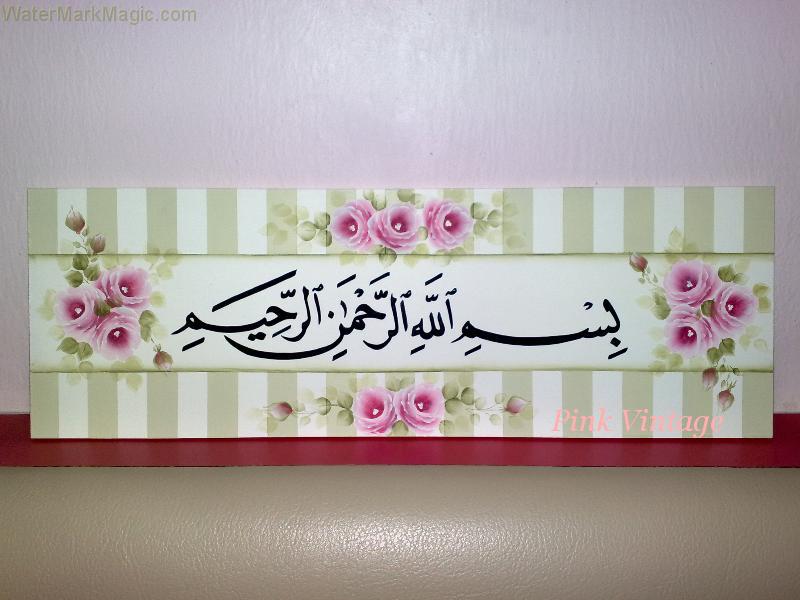 WaterMarkMagic.com
بِسْمِ ٱللَّهِ ٱلرَّحْمَٰنِ ٱلرَّحِيمِ
Pink Vintage